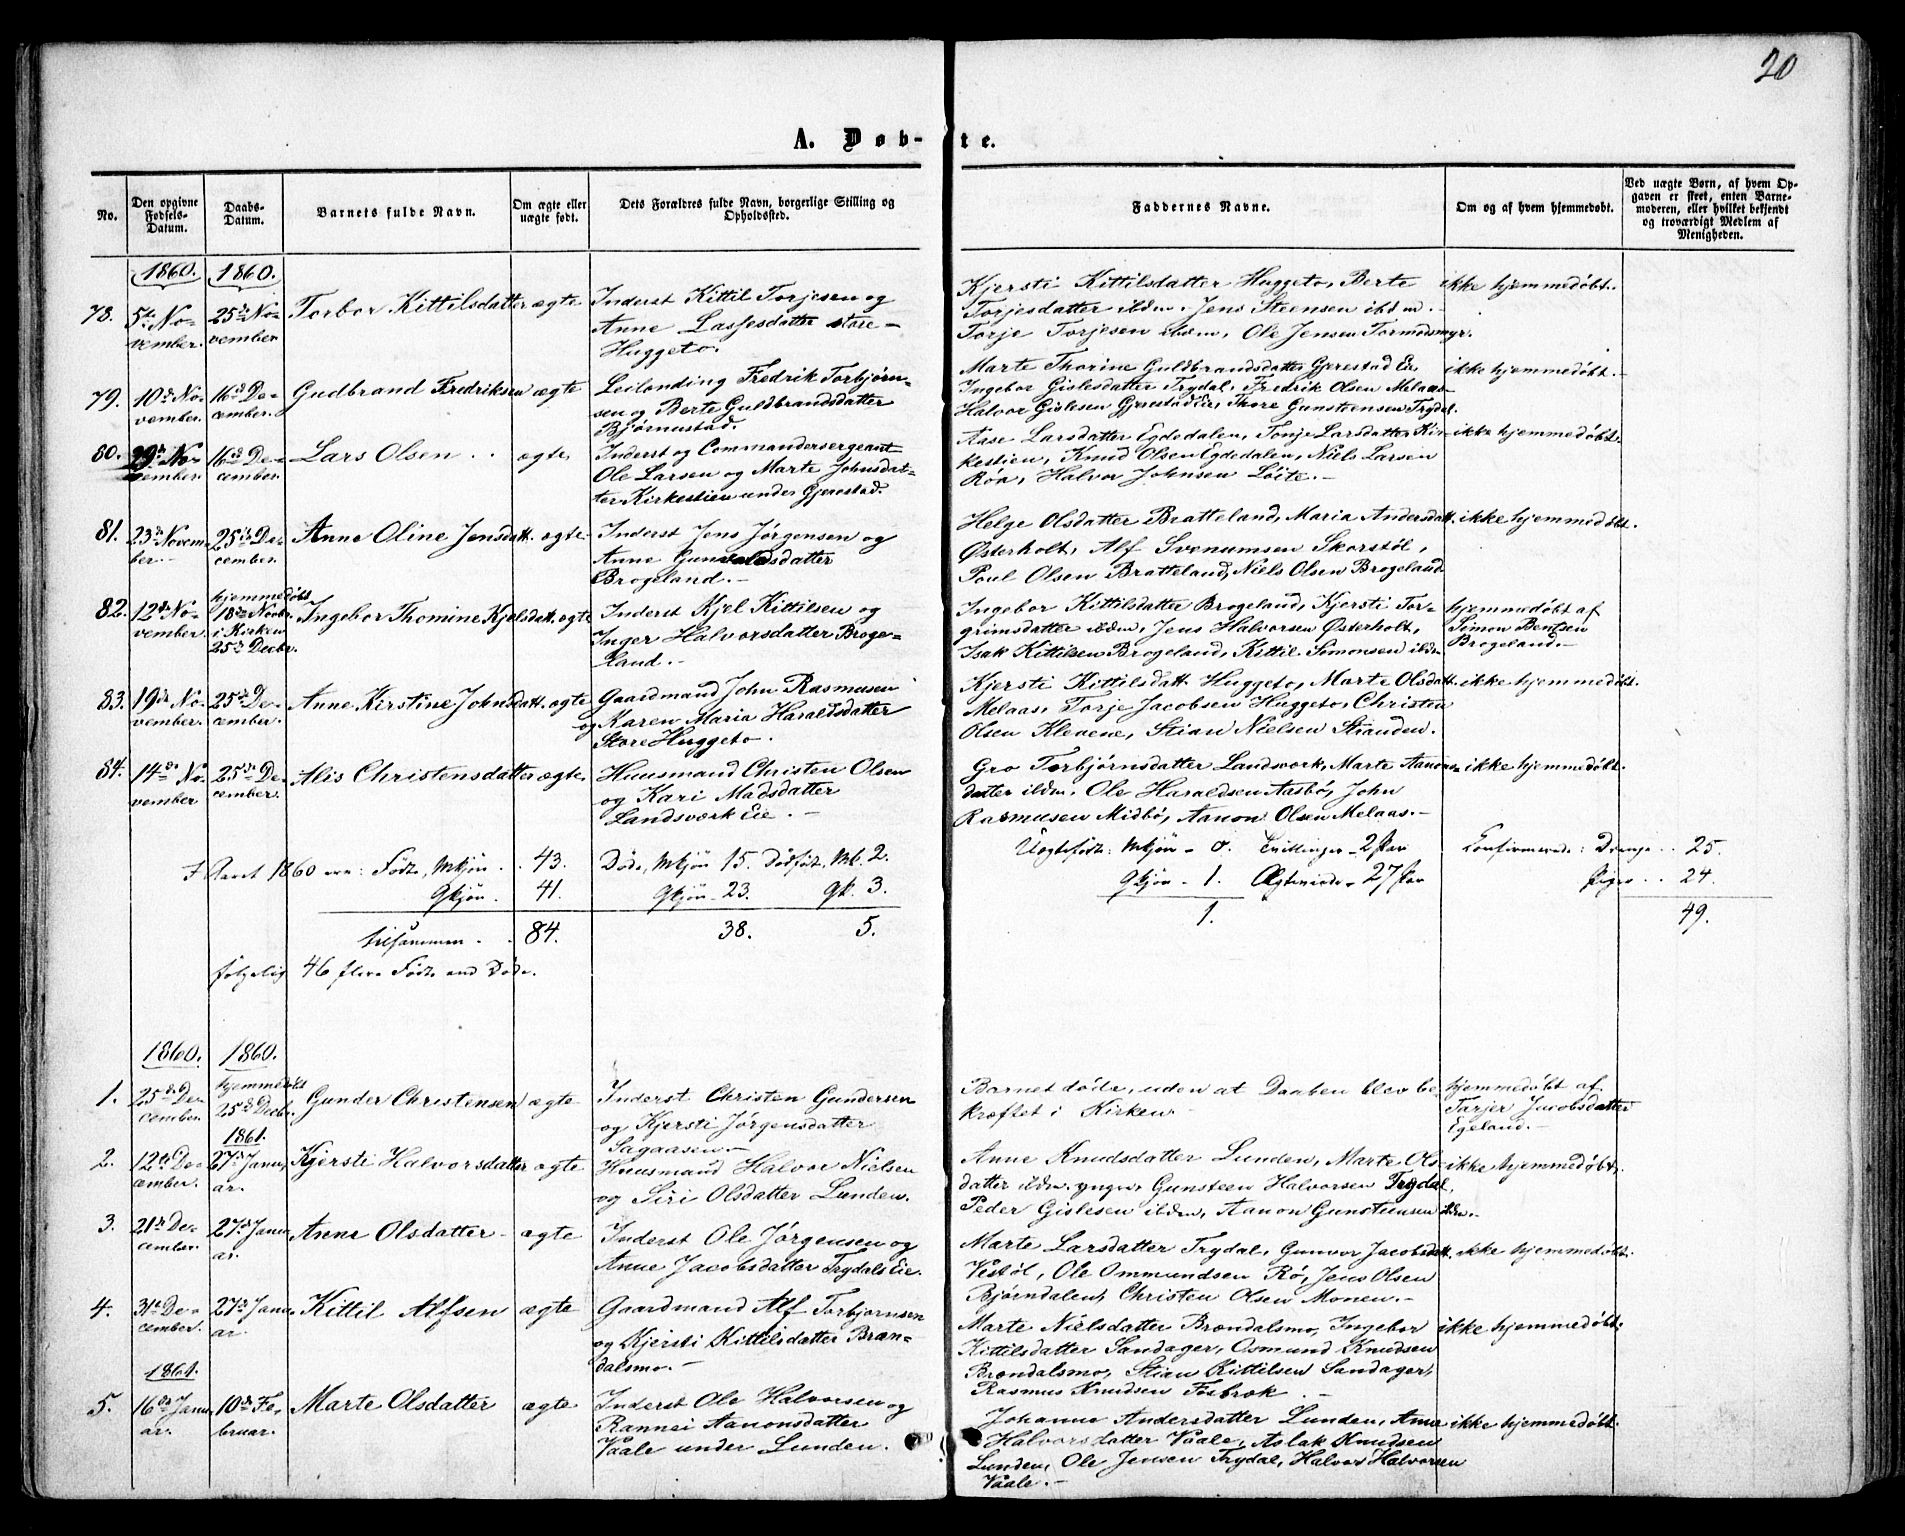 20
A. Døb-te.
No.
Den opgivne Fødsels-Datum.
Daabs-Datum.
Barnets fulde Navn.
Om ægte eller uægte født.
Dets Forældres fulde Navn, borgerlige Stilling og Opholdssted.
Faddernes Navne.
Om og af hvem hjemmedøbt.
Ved uægte Børn, af hvem Opgaven er skeet, enten Barnemoderen, eller hvilket bekjendt og troværdigt Medlem af Menigheden.
1860. 1860.
78. 5te November. 25de November Torbor Kittilsdatter ægte
Inderst Kittil Torjesen og
Anne Lassesdatter store
Huggeto.
Kjersti Kittilsdatter Huggeto, Berte
Torjesdatter ibdm. Jens Steensen ibdm.
Torje Torjesen ibdm, Ole Jensen Tormodsmyr.
ikke hjemmedøbt.
79. 10de November. 16de December. Gudbrand Fredriksen ægte
Leilænding Fredrik Torbjørn-
sen og Berte Guldbrandsdatter
Bjørnustad.
Marte Thorine Guldbrandsdatter Gjerestad Er
Ingebor Gislesdatter Trydal, Fredrik Olsen Melaas
Halvor Gislesen Gjerestad Er, Thore Gunsteensen Trydal.
ikke hjemmedøbt.
80. 29de November. 16de December. Lars Olsen ægte
Inderst og Commandersergeant
Ole Larsen og Marte Johnsdat-
ter Kirkestien under Gjerestad.
Aase Larsdatter Egdedalen, Tonje Larsdatter Kir-
kestien, Knud Olsen Egdedalen, Niels Larsen
Røa, Halvor Johnsen Løite.
ikke hjemmedøbt.
81. 23de November. 25de December. Anne Oline Jensdatt. ægte
Inderst Jens Jørgensen og
Anne Gunvaldsdatter
Brogeland.
Helge Olsdatter Bratteland, Maria Andersdatt.
Østerholt, Alf Svenumsen Skorstøl,
Poul Olsen Bratteland, Niels Olsen Brogeland
ikke hjemmedøbt.
82. 12te November. hjemmedøbt 18de Novbr. i Kirken 25de Decbr. Ingebor Thomine Kjelsdatt. ægte
Inderst Kjel Kittilsen og
Inger Halvorsdatter Broge-
land.
Ingebor Kittilsdatter Brogeland, Kjersti Tor-
grimsdatter ibdm, Jens Halvorsen Østerholt,
Isak Kittilsen Brogeland, Kittil Simonsen ibdm
hjemmedøbt af
Simon Bentsen
Brogeland.
83. 19de November. 25de December. Anne Kirstine Johnsdatt. ægte
Gaardmand John Rasmusen
og Karen Maria Haraldsdatter
Store Huggeto.
Kjersti Kittilsdatt. Huggeto, Marte Olsdatt.
Melaas, Torje Jacobsen Huggeto, Christen
Olsen Klevene, Stian Nielsen Stranden.
ikke hjemmedøbt.
84. 14de November 25de December. Alis Christensdatter ægte
Huusmand Christen Olsen
og Kari Madsdatter
Landsværk Eie.
Gro Torbjørnsdatter Landsværk, Marte Aanons-
datter ibdm, Ole Haraldsen Aasbø, John
Rasmusen Midbø, Aanon Olsen Melaas.
ikke hjemmedøbt.
I Aaret 1860 ere: Fødte, Mkjøn 43. Døde, Mkjøn 15. Dødføt. Mk. 2. Uægtefødte: Mkjøn 0. Tvillinger 2 Par Konfirmerede: Drenge 25.
Qkjøn 41. Qkjøn 23. Qk. 3. Qkjøn 1. Ægteviede 27 Par Piger 24.
tilsammen 84. 38. 5. 1. 49.
følgelig 46 flere Fødte end Døde.
1860. 1860.
1. 25de December. hjemmedøbt 25de Decbr. Gunder Christensen ægte
Inderst Christen Gundersen
og Kjersti Jørgensdatter
Sagaasen
Barnet døde, uden at Daaben blev be-
kræftet i Kirken
hjemmedøbt af
Tarjer Jacobsdatter
Egeland.
1861.
2. 12te December. 27de Januar. Kjersti Halvorsdatter ægte
Huusmand Halvor Nielsen
og Siri Olsdatter Lunden.
Anne Knudsdatter Lunden, Marte Ols-
datter ibdm. yngre, Gunsteen Halvorsen Trydal,
Peder Gislesen ibdm, Aanon Gunsteensen ibdm.
ikke hjemmedøbt.
3. 21de December. 27de Januar. Anne Olsdatter ægte
Inderst Ole Jørgensen og
Anne Jacobsdatter Trydals Eie.
Marte Larsdatter Trydal, Gunvor Jacobsdatt.
Vestøl, Ole Ommundsen Rø, Jens Olsen
Bjørndalen, Christen Olsen Monen.
ikke hjemmedøbt.
4. 31te December. 27de Januar. Kittil Alfsen ægte
Gaardmand Alf Torbjørnsen
og Kjersti Kittilsdatter Bræn-
dalsmo.
Marte Nielsdatter Brændalsmo, Ingebor
Kittilsdatter Sandager, Osmund Knudsen
Brændalsmo, Stian Kittilsen Sandager,
Rasmus Knudsen Fosbræk.
ikke hjemmedøbt.
1861.
5. 16de Januar. 10de Februar. Marte Olsdatter ægte
Inderst Ole Halvorsen og
Rannei Aanonsdatter
Vaale under Lunden.
Johanne Andersdatter Lunden, Anne
Halvorsdatter Vaale, Aslak Knudsen
Lunden, Ole Jensen Trydal, Halvor Halvorsen
Vaale.
ikke hjemmedøbt.